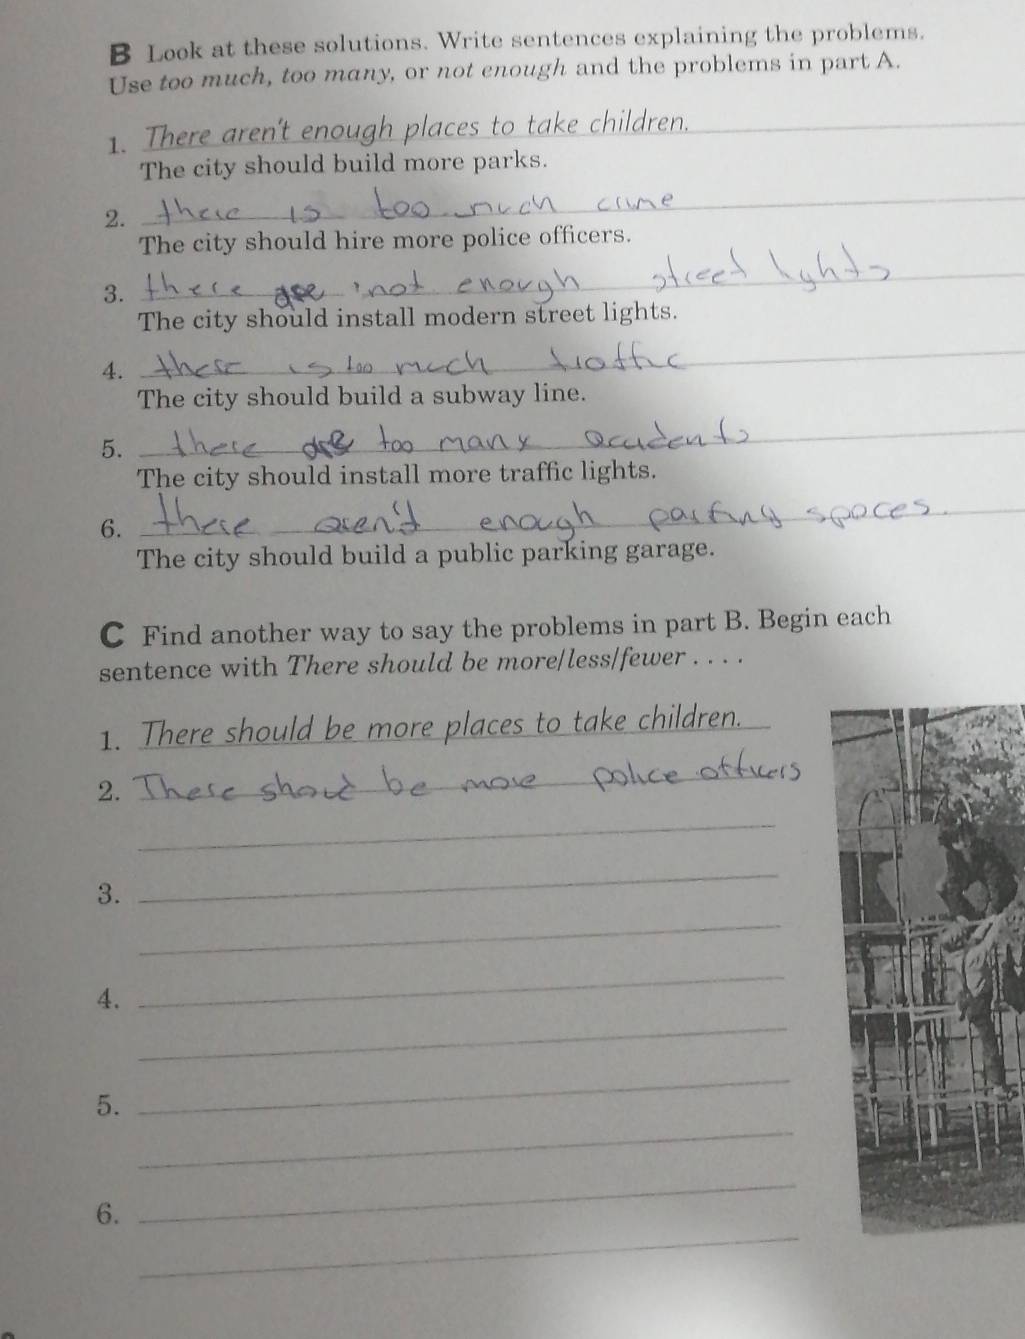 B Look at these solutions. Write sentences explaining the problems.
Use too much, too many, or not enough and the problems in part A.
1. There aren't enough places to take children.
The city should build more parks.
2. there is too much crime
The city should hire more police officers.
3. there are not enough street lights
The city should install modern street lights.
4. there is too much traffic
The city should build a subway line.
5. there are too many acudents
The city should install more traffic lights.
6. there aren't enough parking spaces.
The city should build a public parking garage.
C Find another way to say the problems in part B. Begin each
sentence with There should be more/less/fewer . . . .
1. There should be more places to take children.
2. There should be more police officers
3.
4.
5.
6.